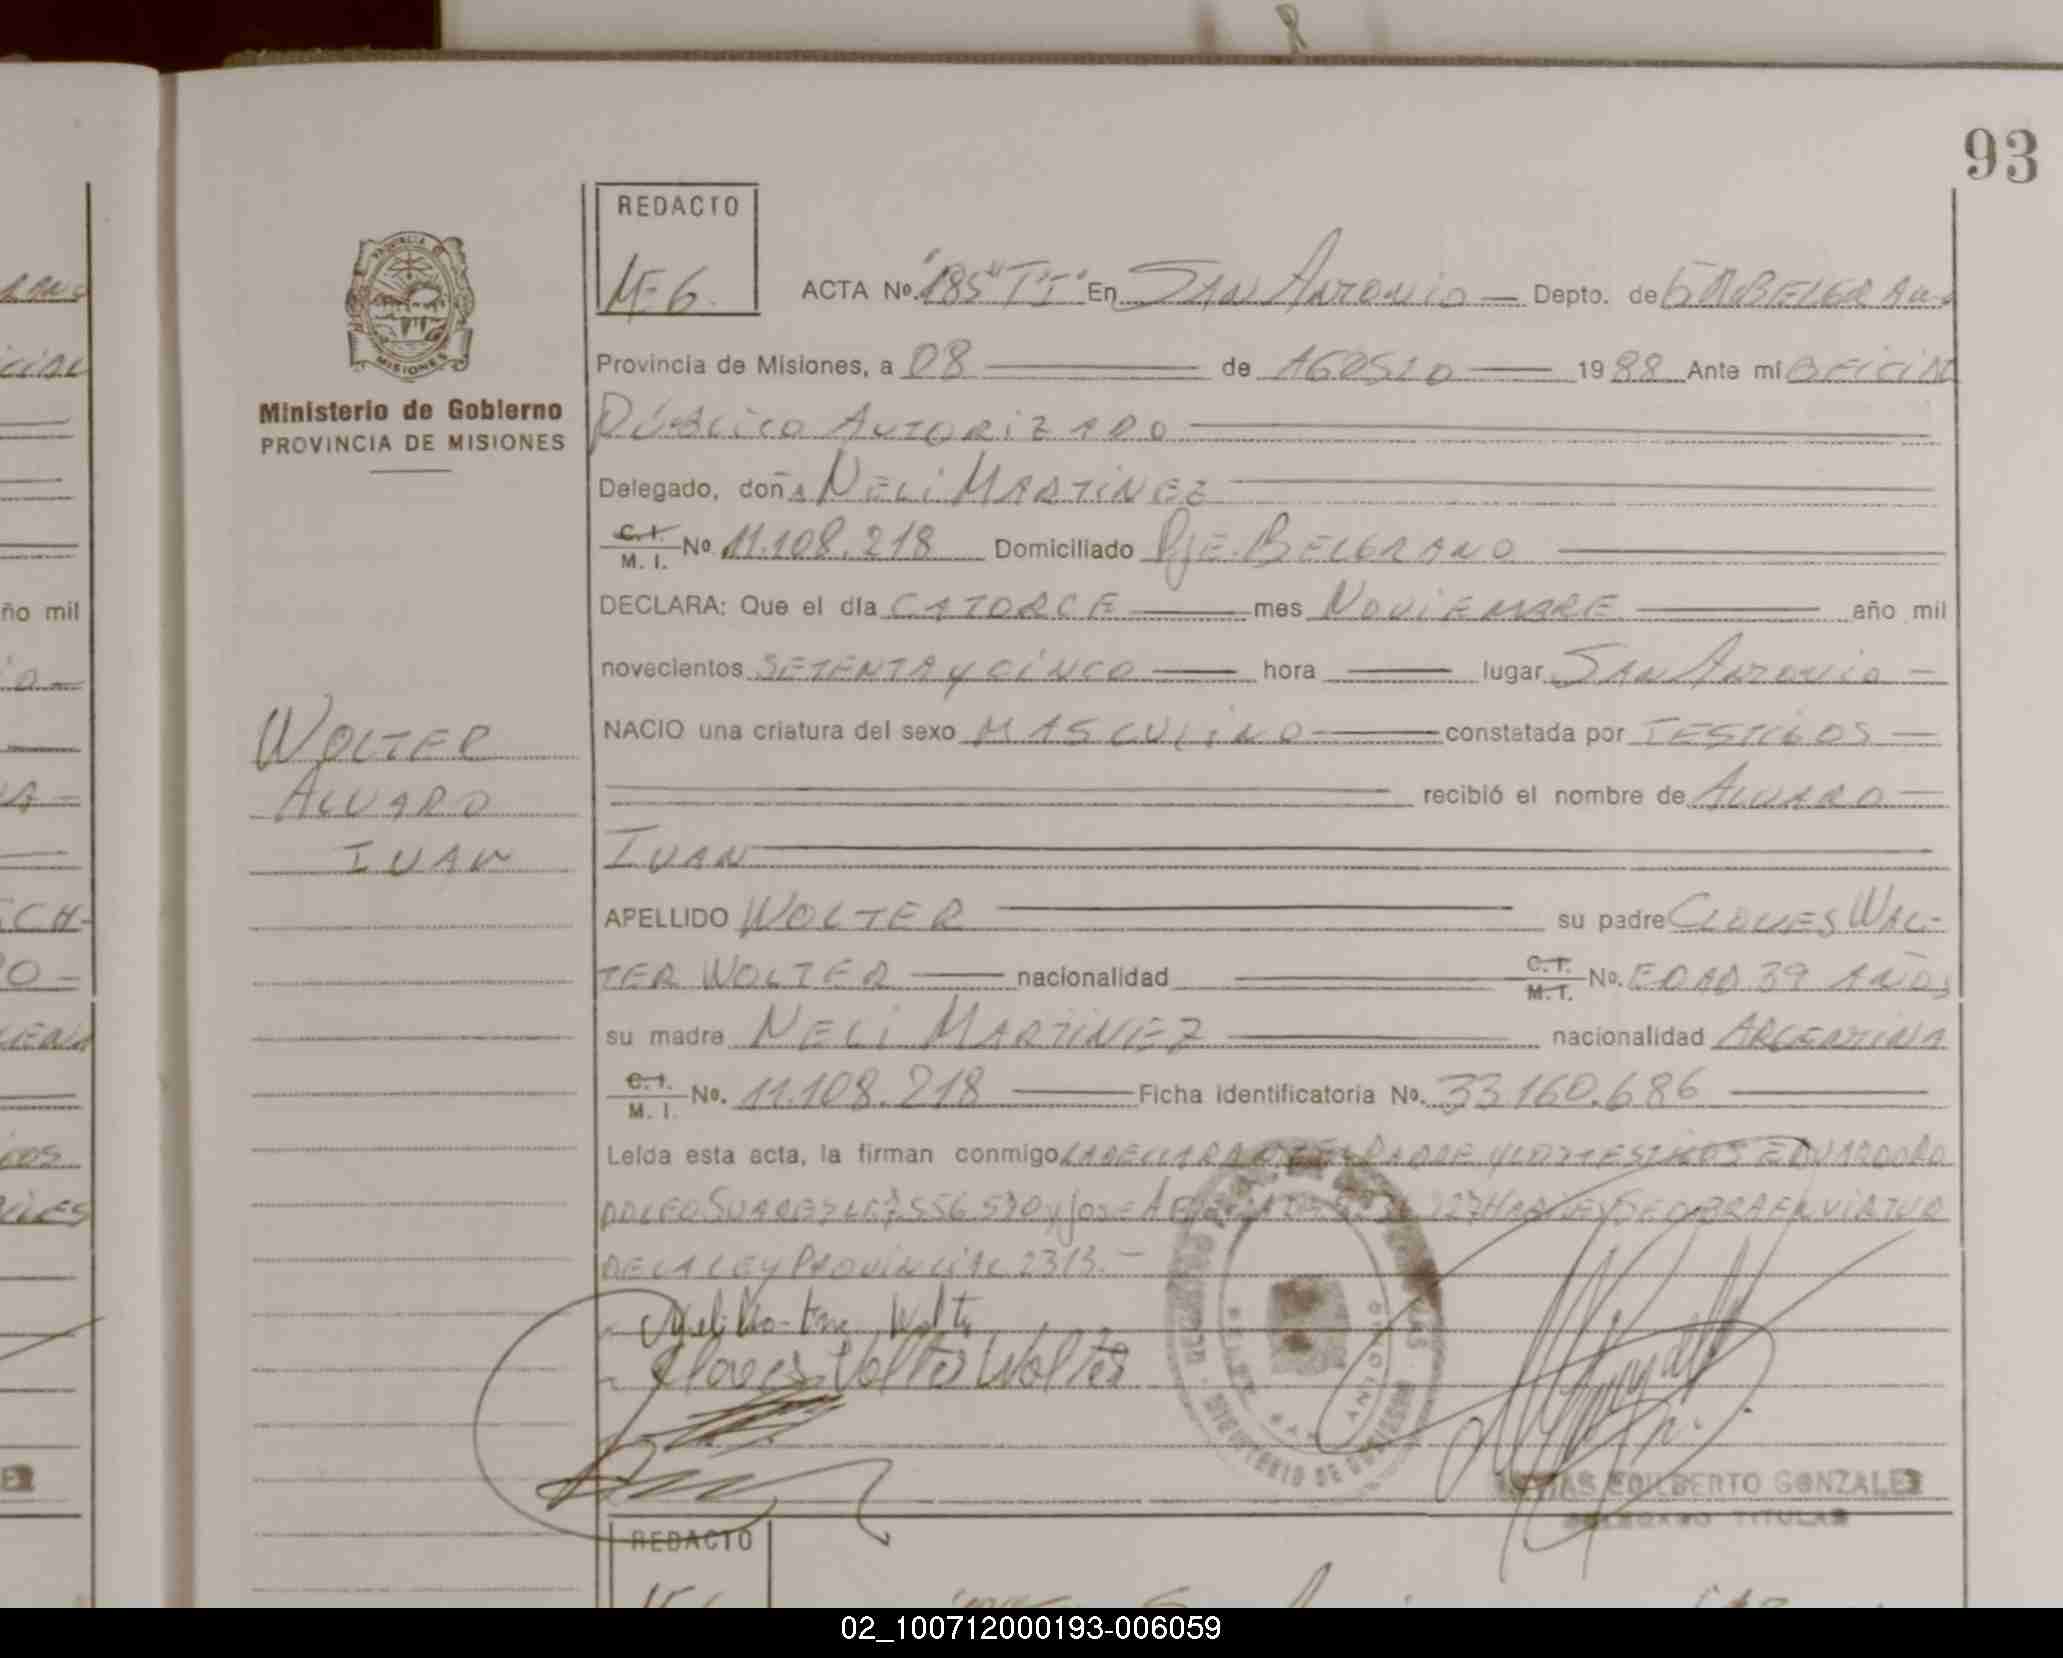 93
REDACTO
M-6.
ACTA No. "185" T "I" En San Antonio — Depto. de G
Provincia de Misiones, a 08 — de Agosto — 1988 Ante mi Oficial
Público Autorizado
Delegado, doña Neli Martinez
C.I. M.I. No 11.108.218 Domiciliado Pje. Belgrano
DECLARA: Que el día CATORCE — mes Noviembre — año mil
novecientos SETENTA y CINCO — hora — lugar San Antonio —
NACIO una criatura del sexo MASCULINO — constatada por TESTIGOS —
recibió el nombre de Alvaro —
Ivan
APELLIDO WOLTER — su padre Cloves Wal-
TER WOLTER — nacionalidad — C.I. M.I. No. EDAD 39 AÑOS
su madre NELI MARTINEZ — nacionalidad ARGENTINA
C.I. M.I. No. 11.108.218 — Ficha identificatoria No. 33160.686 —
Leída esta acta, la firman conmigo LA DECLARANTE EL PADRE Y LOS TESTIGOS EDUARDO RO
DOLFO SUAREZ LE 7.556.530 y Jose SE OBRA EN VIRTUD
DE LA LEY PROVINCIAL 2313. —
Cloves Walter Wolter
MINISTERIO DE GOBIERNO
EDILBERTO GONZALEZ
DELEGADO TITULAR
Ministerio de Gobierno
PROVINCIA DE MISIONES
PROVINCIA D
MISIONES
WOLTER
ALVARO
IVAN
REDACTO
ño mil
02_100712000193-006059